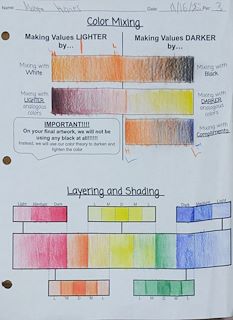 Name: Date: 11/16/ Per: 3
Color Mixing
Making Values LIGHTER
by...
Making Values DARKER
by...
Mixing with
White
Mixing with
Black
Mixing with
LIGHTER
analogous
colors
Mixing with
DARKER
analogous
colors
IMPORTANT!!!!
On your final artwork, we will not be
using any black at all!!!!!!
Instead, we will use our color theory to darken and
lighten the color
Mixing with
Compliments
Layering and Shading
Light Medium Dark
L M D
Dark Medium Light
L M D
L M D